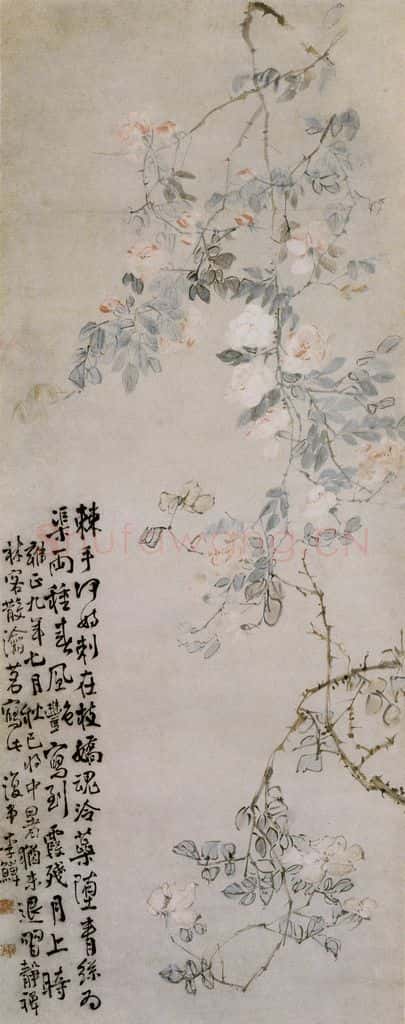 棘手何妨刺在枝嬌魂冷蘂墮青絲為
渠兩種春風艷寫到霞殘月上時
雍正九年七月秋已將中暑猶未退習靜禪
林客散瀹茗寫此 復堂李鱓
Shufawang.CN